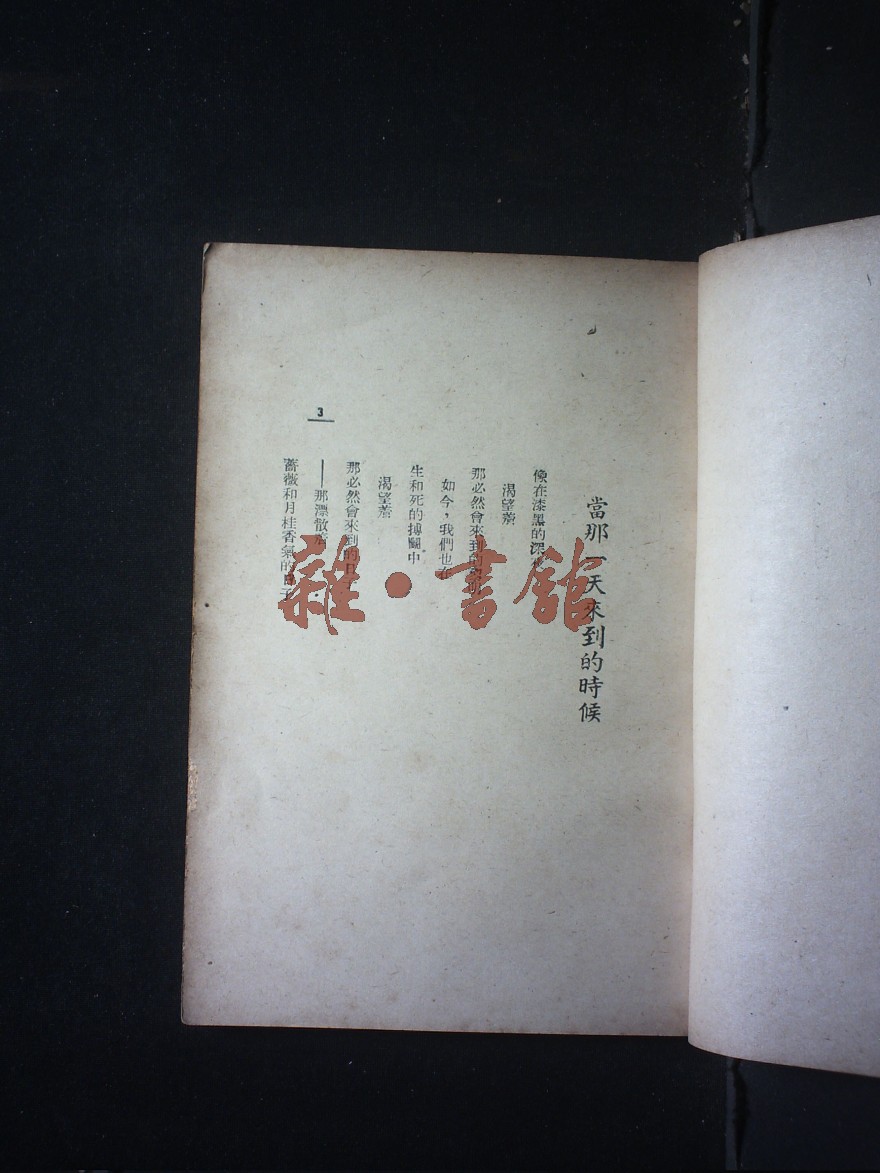 當那一天來到的時候
像在漆黑的深
渴望着
那必然會來到的
如今，我們也在
生和死的搏鬭中
渴望着
那必然會來到的日
——那漂散着
薔薇和月桂香氣的日子
3
雜·書館